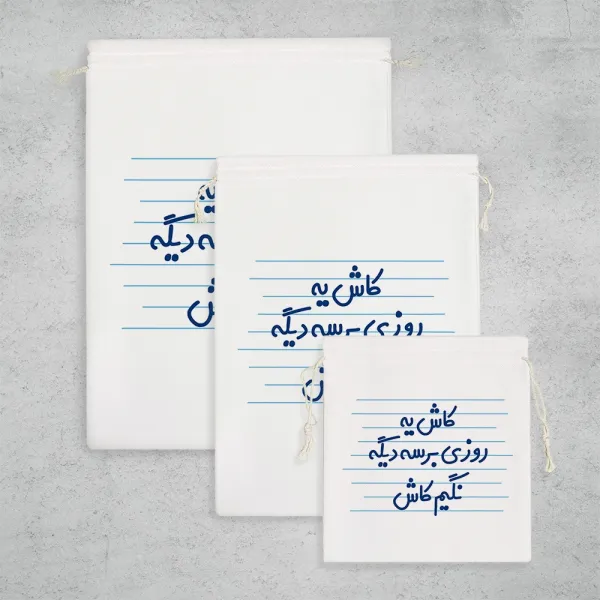 یه
دیگه
کاش یه
روزی برسه دیگه
کاش یه
روزی برسه دیگه
نگیم کاش